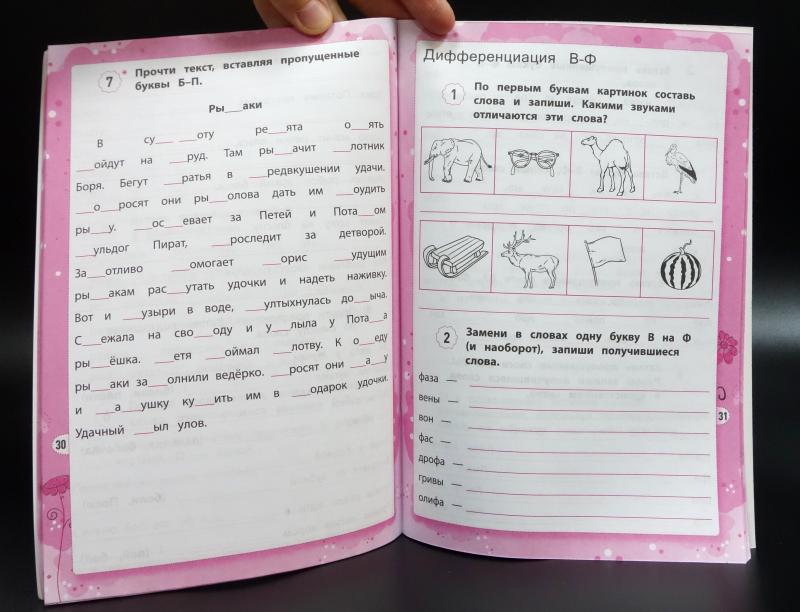 7 Прочти текст, вставляя пропущенные
буквы Б–П.
Ры___аки
В су___ ___оту ре___ята о___ять
___ойдут на ___руд. Там ры___ачит ___лотник
Боря. Бегут ___ратья в ___редвкушении удачи.
___о___росят они ры___олова дать им ___оудить
ры___у. ___ос___евает за Петей и Пота___ом
___ульдог Пират, ___роследит за детворой.
За___отливо ___омогает ___орис ___удущим
ры___акам рас___утать удочки и надеть наживку.
Вот и ___узыри в воде, ___ултыхнулась до___ыча.
С___ежала на сво___оду и у___лыла у Пота___а
ры___ёшка. ___етя ___оймал ___лотву. К о___еду
ры___аки за___олнили ведёрко. ___росят они ___а___у
и ___а___ушку ку___ить им в ___одарок удочки.
Удачный ___ыл улов.
30
Дифференциация В-Ф
1 По первым буквам картинок составь
слова и запиши. Какими звуками
отличаются эти слова?
2 Замени в словах одну букву В на Ф
(и наоборот), запиши получившиеся
слова.
фаза —
вены —
вон —
фас —
дрофа —
гривы —
олифа —
31